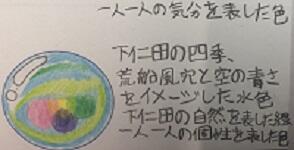 一人一人の気分を表した色
下仁田の四季、
荒船風穴と空の青さ
をイメージした水色
下仁田の自然を表した緑
一人一人の個性を表した色